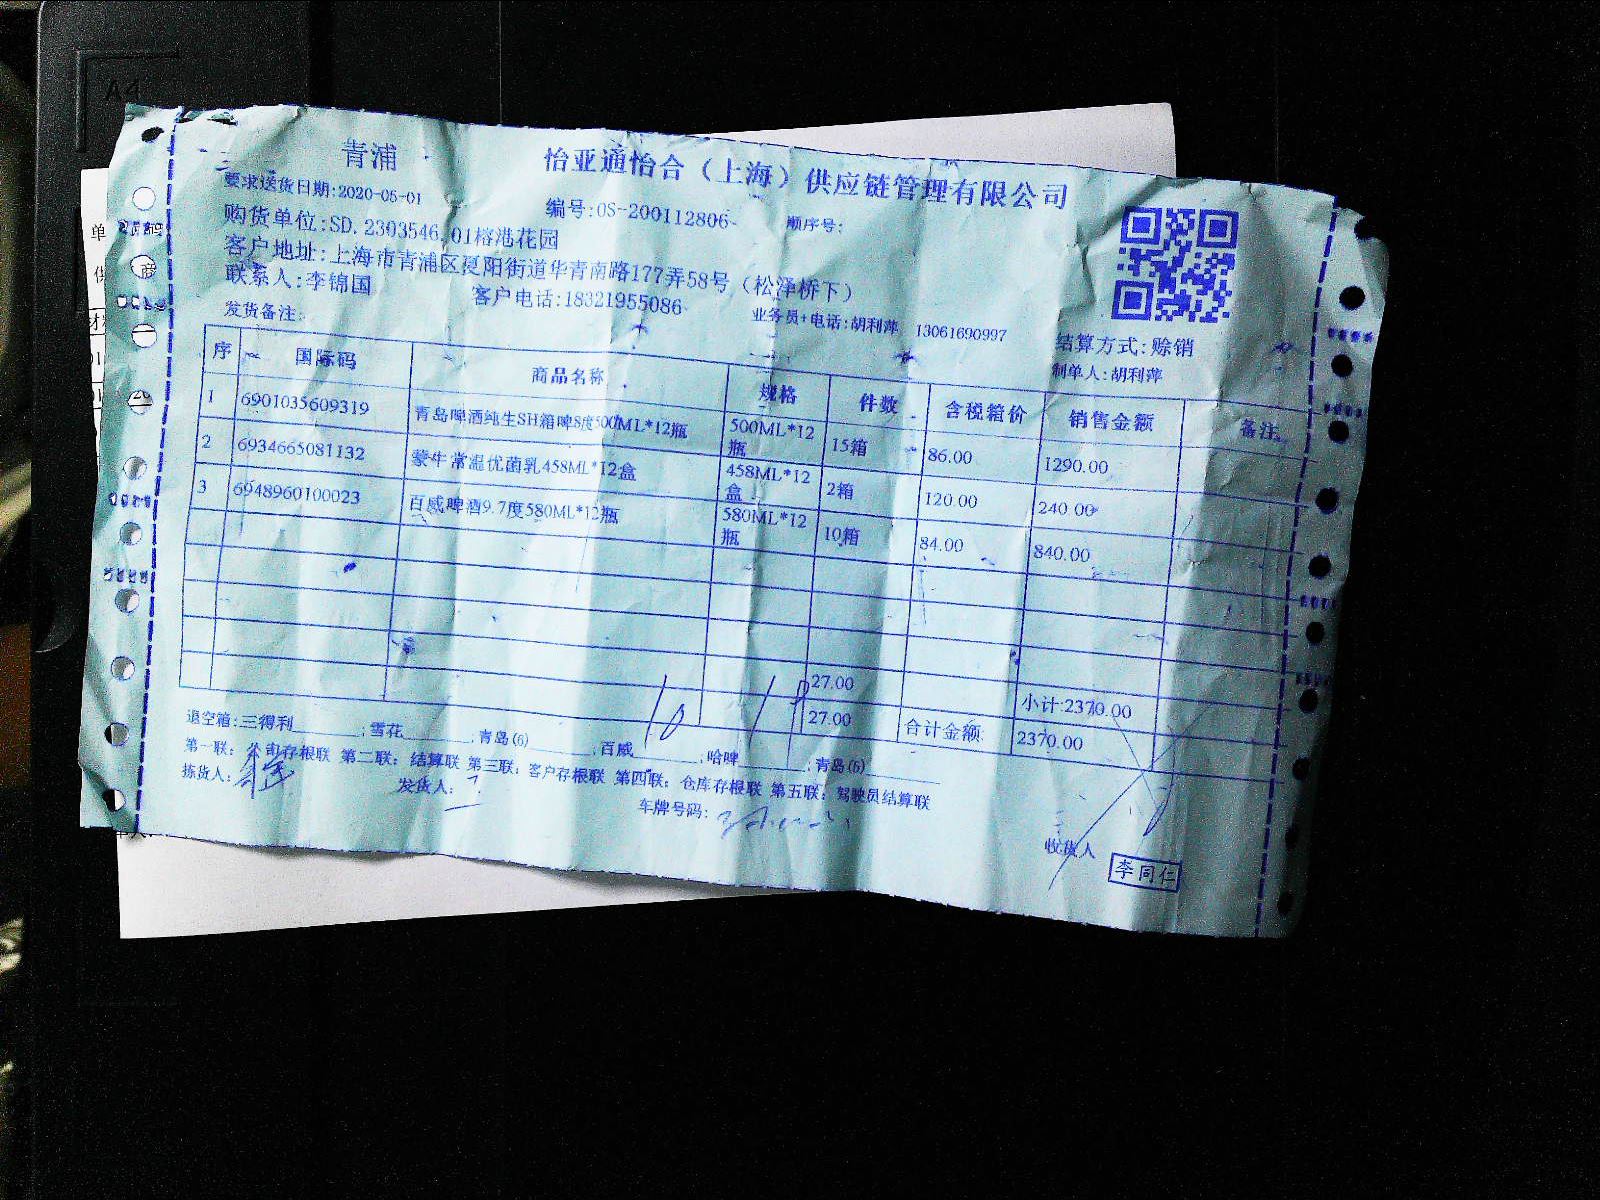 A4
青浦
怡亚通怡合（上海）供应链管理有限公司
要求送货日期:2020-05-01
编号:OS-200112806-
顺序号:
购货单位:SD.2303546.01榕港花园
客户地址:上海市青浦区夏阳街道华青南路177弄58号（松泽桥下）
联系人:李锦国
客户电话:18321955086
业务员+电话:胡利萍 13061690997
结算方式:赊销
发货备注:
制单人:胡利萍
序 国际码 商品名称 规格 件数 含税箱价 销售金额 备注
1 6901035609319 青岛啤酒纯生SH箱啤8度500ML*12瓶 500ML*12瓶 15箱 86.00 1290.00
2 6934665081132 蒙牛常温优菌乳458ML*12盒 458ML*12盒 2箱 120.00 240.00
3 6948960100023 百威啤酒9.7度580ML*12瓶 580ML*12瓶 10箱 84.00 840.00
27.00 小计:2370.00
27.00 合计金额: 2370.00
退空箱:三得利 ;雪花 ;青岛(6) ;百威 10 ;哈啤 ;青岛(6)
第一联：公司存根联 第二联：结算联 第三联：客户存根联 第四联：仓库存根联 第五联：驾驶员结算联
拣货人:
发货人:
车牌号码:
收货人
李同仁